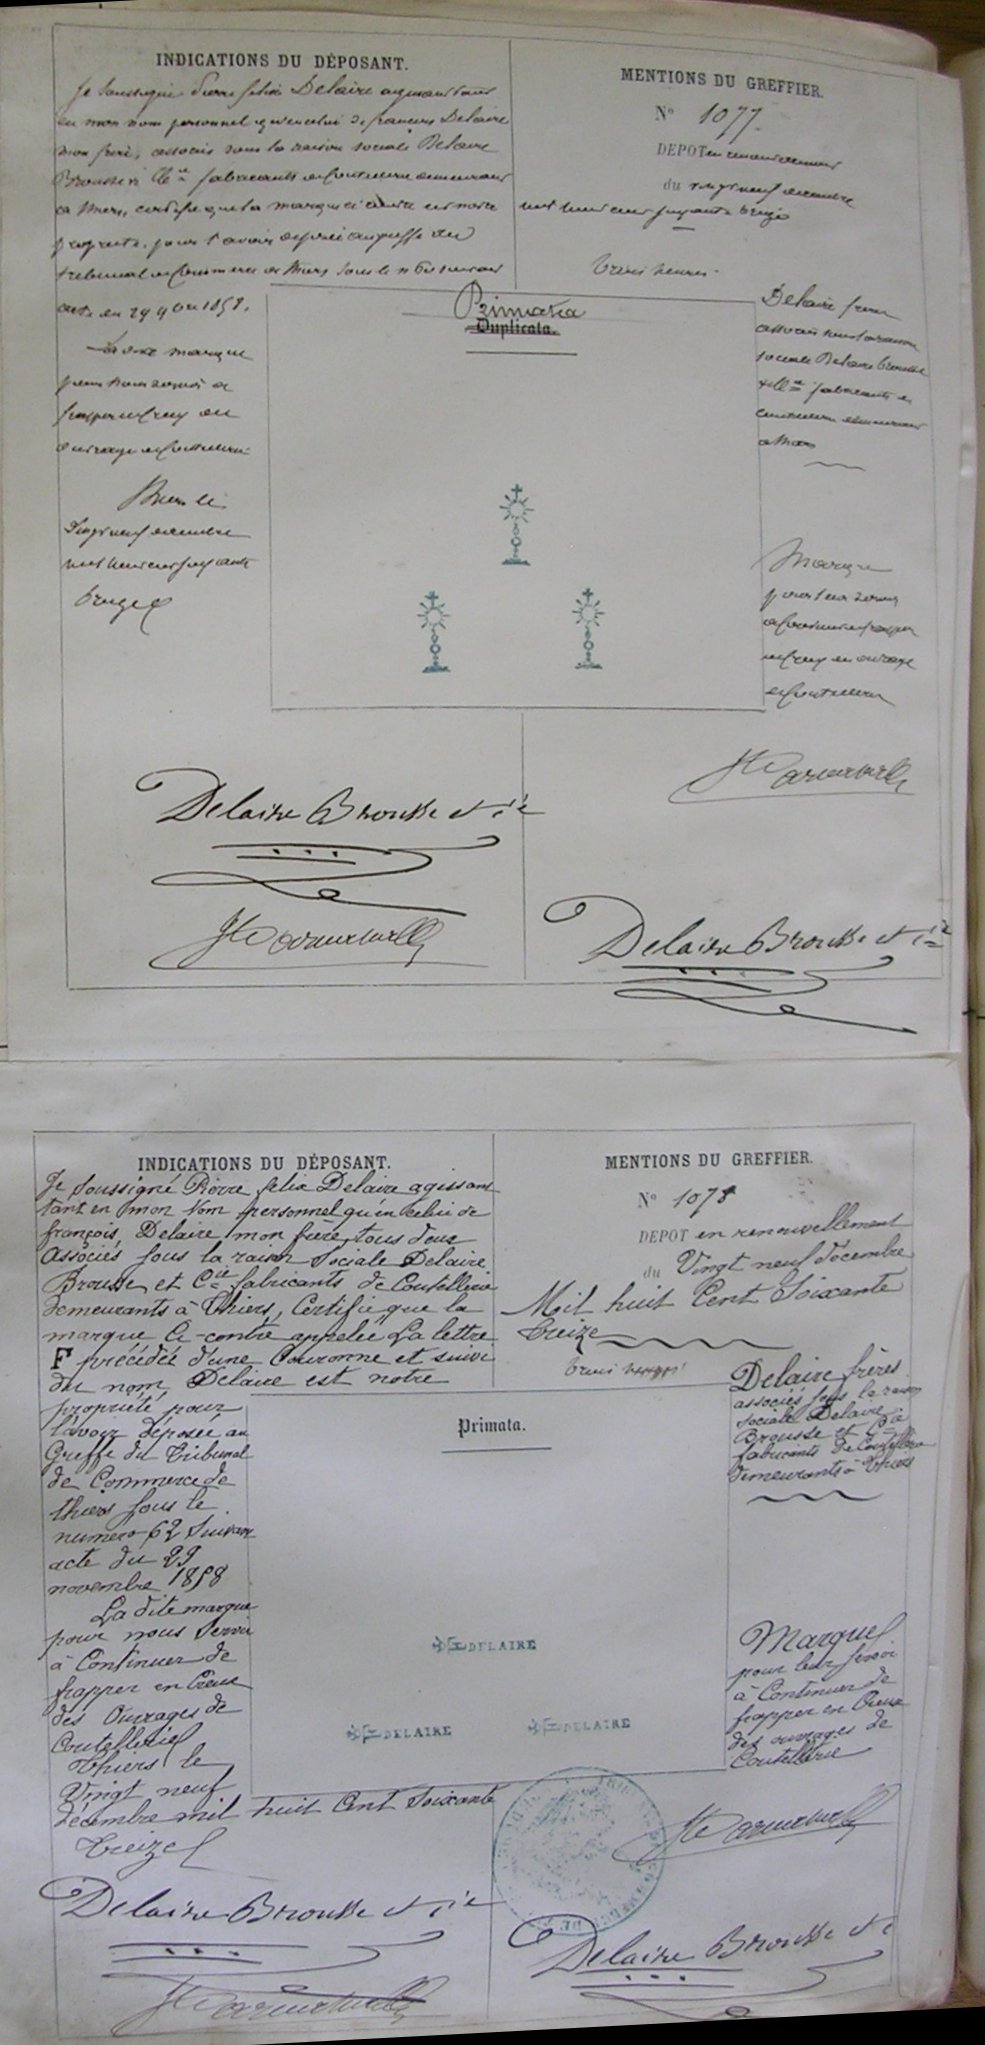 INDICATIONS DU DÉPOSANT.
Je soussigné Pierre felix Delaire agissant tant
en mon nom personnel qu'en celui de françois Delaire
mon frère, associés sous la raison sociale Delaire
Brousse et Cie fabricants de Coutellerie demeurant
à Thiers, certifie que la marque ci contre est notre
propriété pour l'avoir déposée au greffe du
tribunal de Commerce de Thiers sous le n° 61 suivant
acte du 29 9bre 1858.
La dite marque
pour nous servir à
frapper en Creux des
ouvrages de Coutellerie
Thiers le
vingt neuf décembre
mil huit cent soixante
treize
MENTIONS DU GREFFIER.
N° 1077.
DEPOT en renouvellement
du vingt neuf décembre
mil huit cent soixante treize
trois heures
Primata
Duplicata.
Delaire frères
associés sous la raison
sociale Delaire Brousse
et Cie fabricants de
coutellerie demeurant
à Thiers
Marque
pour leur servir
à Continuer à frapper
en Creux des ouvrages
de Coutellerie
Delaire Brousse et Cie
Delaire Brousse et Cie
INDICATIONS DU DÉPOSANT.
Je soussigné Pierre felix Delaire agissant
tant en mon Nom personnel qu'en celui de
françois, Delaire mon frère, tous deux
Associés sous la raison Sociale Delaire
Brousse et Cie fabricants de Coutellerie
demeurants à Thiers, Certifie que la
marque Ci-contre appelée La lettre
F précédée d'une Couronne et suivi
du nom, Delaire est notre
propriété pour
l'avoir déposée au
Greffe du Tribunal
de Commerce de
thiers sous le
numero 62 Suivant
acte du 29
novembre 1858
La dite marque
pour nous Servir
à Continuer de
frapper en Creux
des Ouvrages de
Coutellerie
Thiers le
Vingt neuf
décembre mil huit Cent Soixante
treize
MENTIONS DU GREFFIER.
N° 1078
DEPOT en renouvellement
du Vingt neuf décembre
Mil huit Cent Soixante
treize
trois heures
Primata.
Delaire frères
associés sous la raison
sociale Delaire
Brousse et Cie
fabricants de Coutellerie
demeurants à Thiers
DELAIRE
DELAIRE
DELAIRE
Marque
pour leur servir
à Continuer de
frapper en Creux
des ouvrages de
Coutellerie
Delaire Brousse et Cie
Delaire Brousse et C